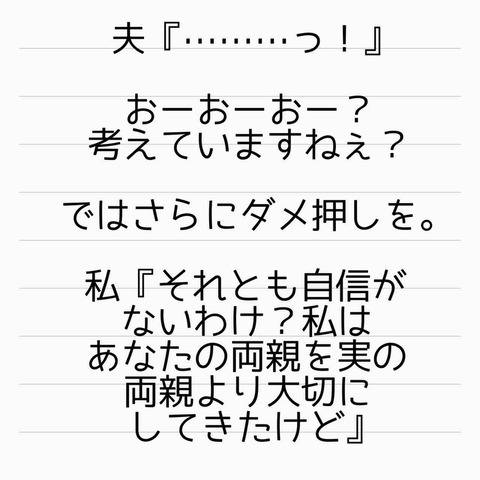 夫『………っ！』
おーおーおー？
考えていますねぇ？
ではさらにダメ押しを。
私『それとも自信が
ないわけ？私は
あなたの両親を実の
両親より大切に
してきたけど』